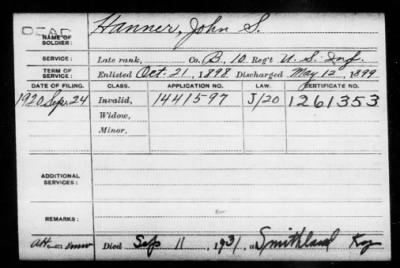 Hanner, John S.
DEAD
NAME OF SOLDIER:
SERVICE: Late rank, Co. B, 10. Reg't U. S. Inf.
TERM OF SERVICE: Enlisted Oct. 21, 1898 Discharged May 12, 1899
DATE OF FILING. CLASS. APPLICATION NO. LAW. CERTIFICATE NO.
1920 Sep. 24 Invalid, 1441597 J/20 1261353
Widow,
Minor,
ADDITIONAL SERVICES:
REMARKS:
Died Sep 11, 1931, at Smithland Ky